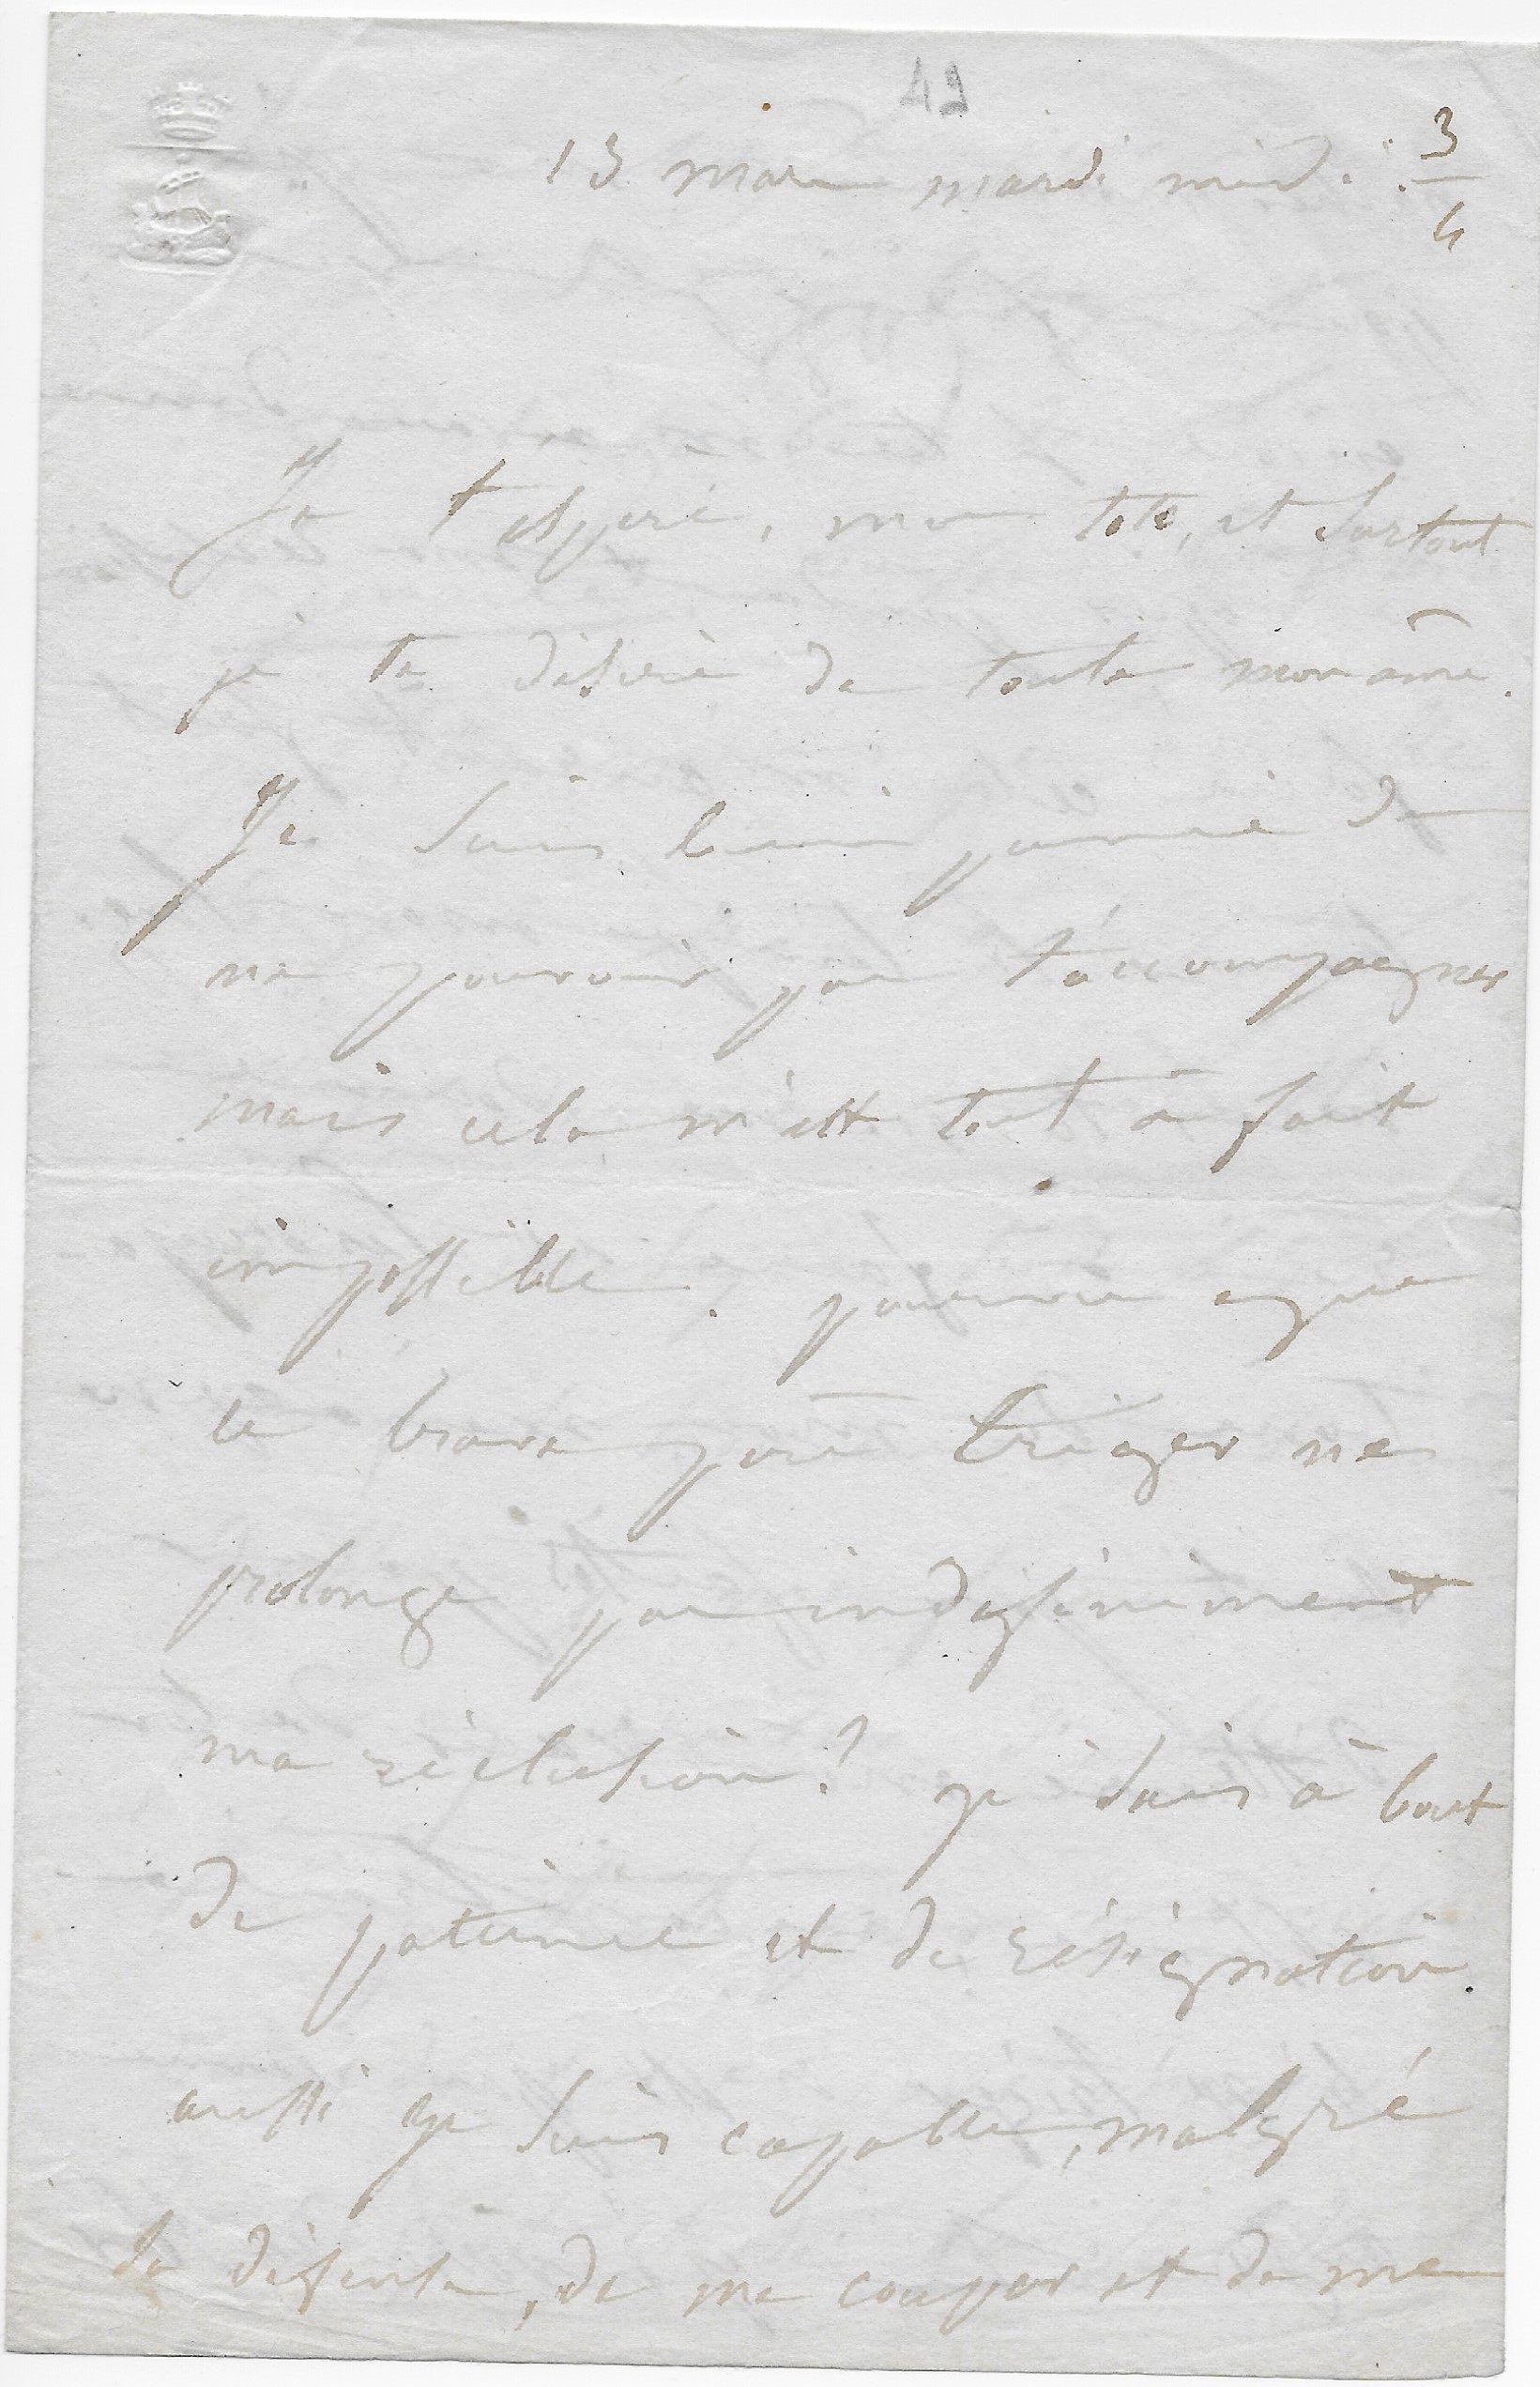 49
13 mars mardi midi 3/4
Je t'espère, mon Toto, et surtout
je te désire de toute mon âme.
Je suis bien punie de
ne pouvoir pas t'accompagner
mais cela m'est tout à fait
impossible. pourvu que
ce brave père Triger ne
prolonge pas indéfiniment
ma réclusion ? je suis à bout
de patience et de résignation.
aussi je suis capable, malgré
sa défense, de me couper et de me